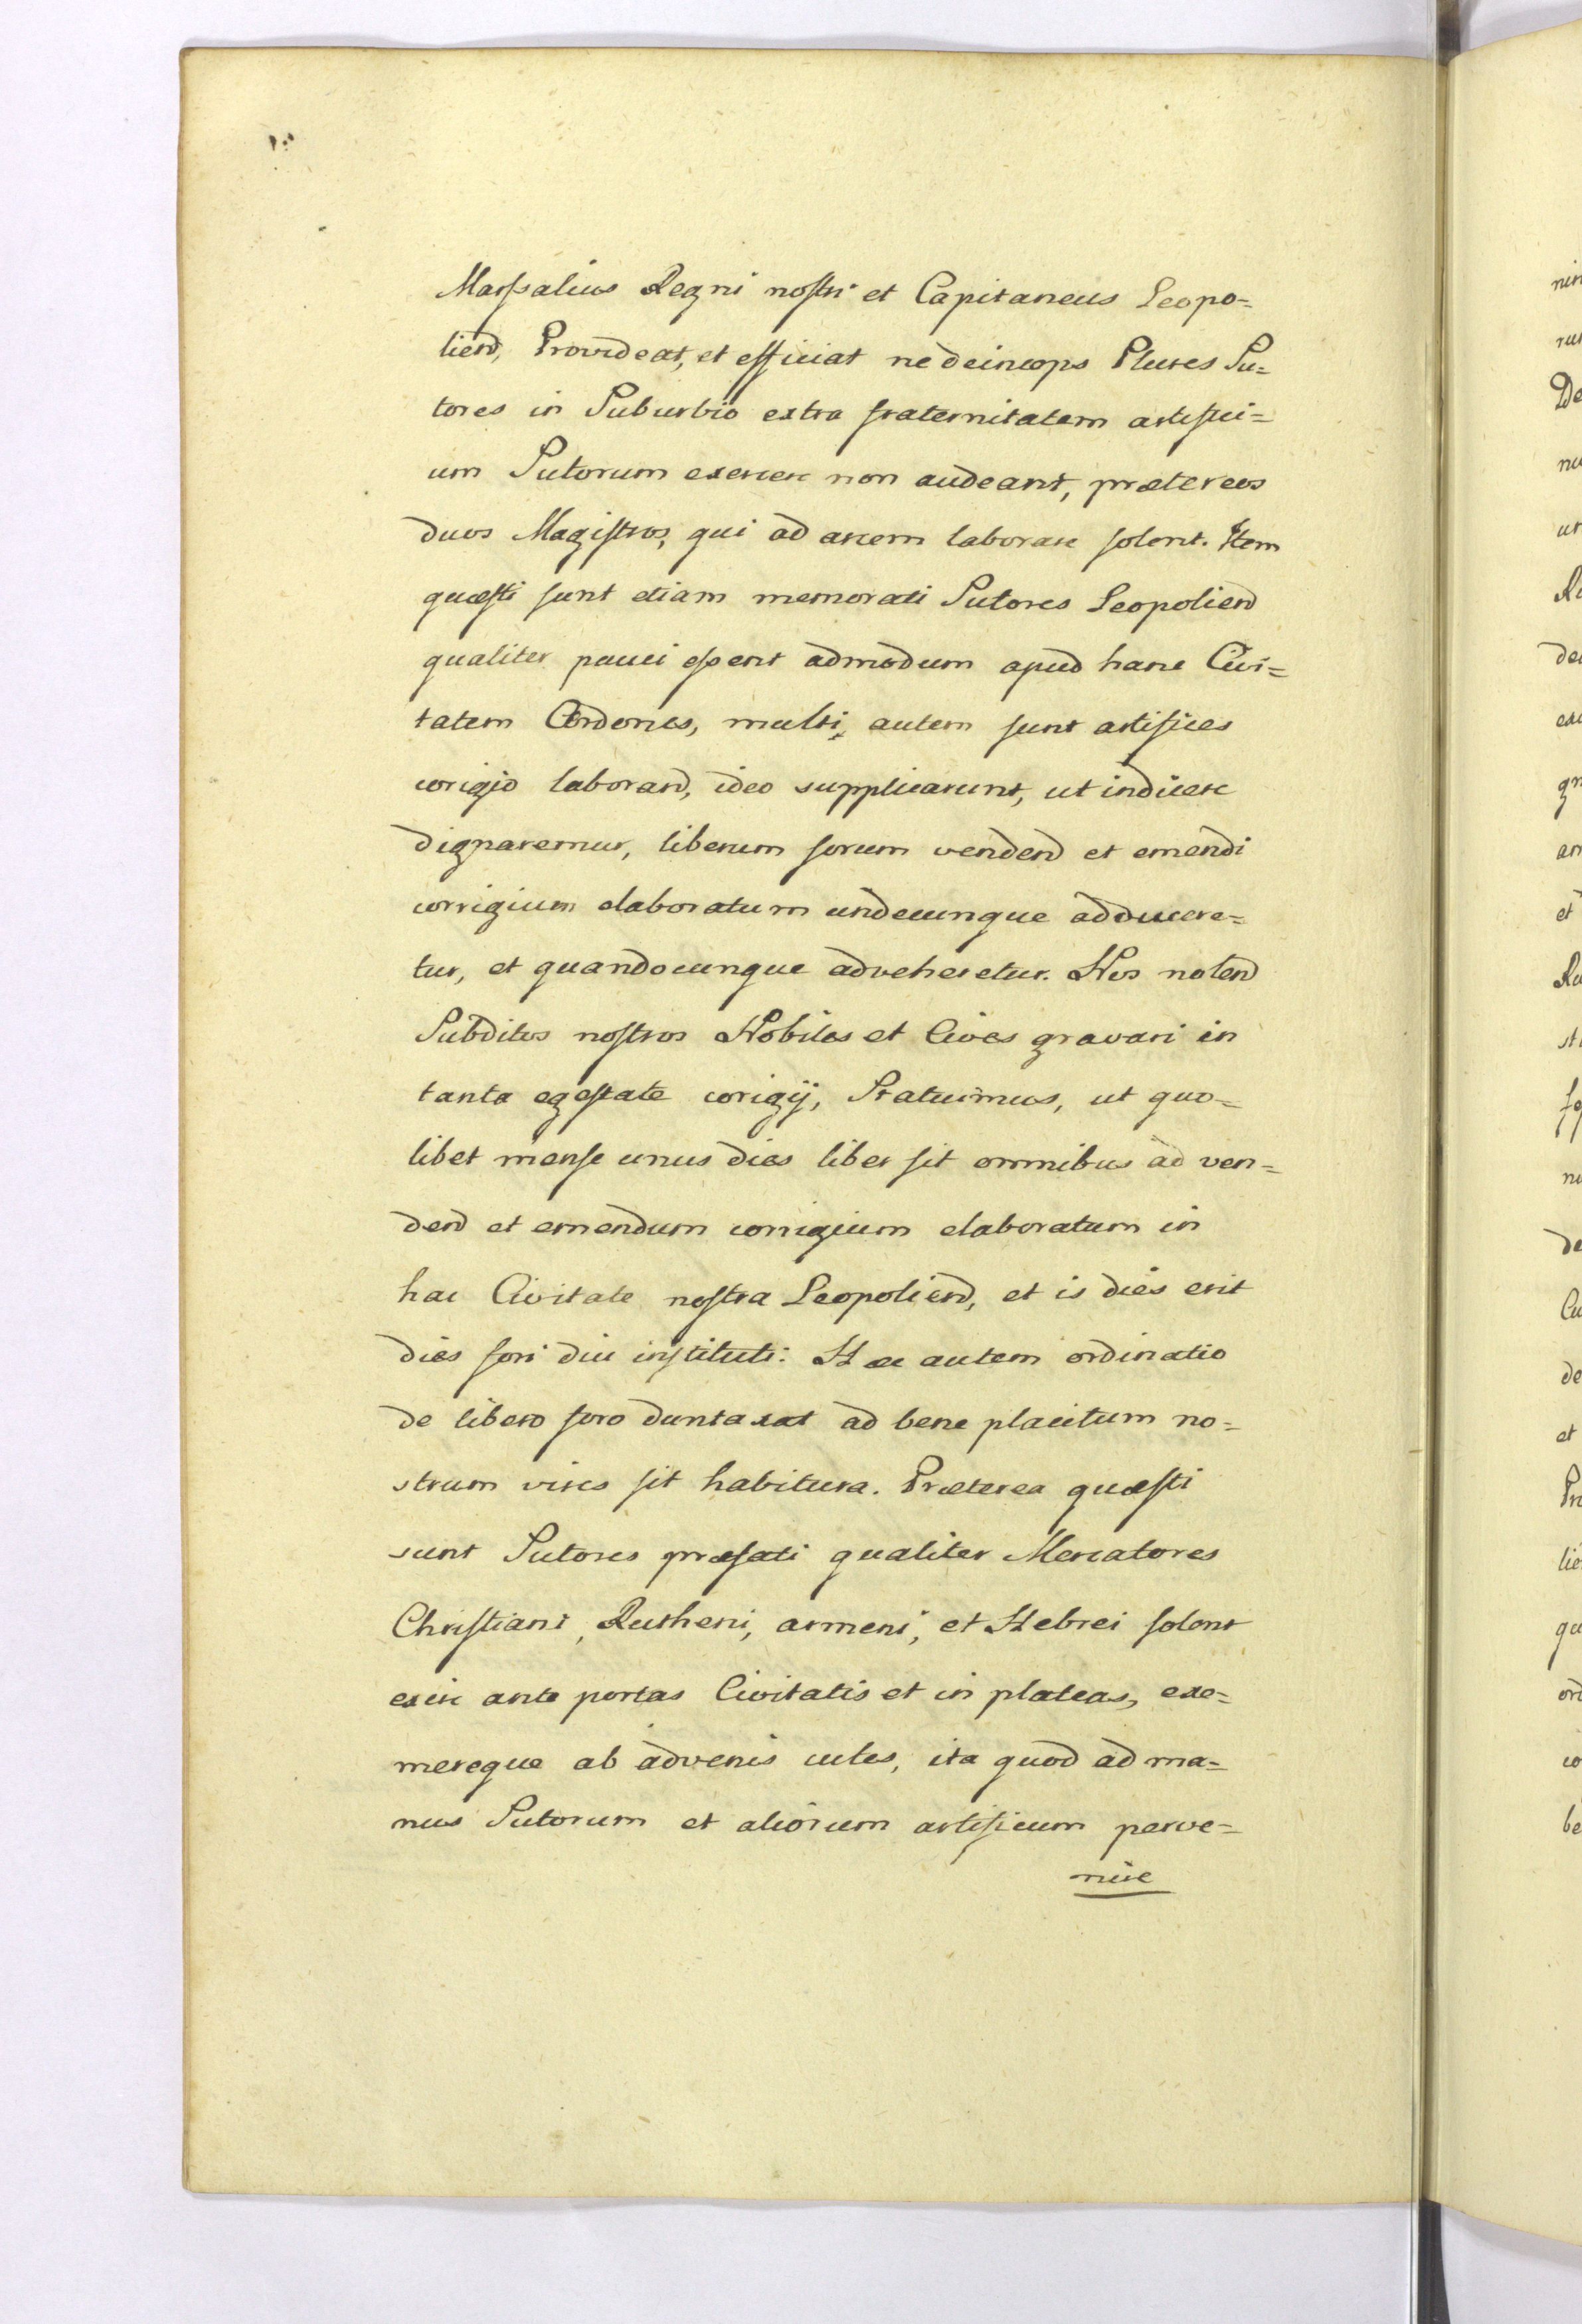 Marsßalius Regni nostri et Capitaneus Leopo=
liend, Provideat, et efficiat ne deinceps Plures Su=
tores in Suburbio extra fraternitatem artifici=
um Sutorum exercere non audeant, præter eos
duos Magistros, qui ad arcem laborare solent. Item
quæsti sunt etiam memorati Sutores Leopoliend
qualiter pauci essent admodum apud hanc Civi=
tatem Cerdones, multi, autem sunt artifices
corigio laborand, ideo supplicarunt, ut indicere
dignaremur, liberum forum vendend et emendi
corrigium elaboratum undecunque adducere=
tur, et quandocunque adveheretur. Nos nolend
Subditos nostros Nobiles et Cives gravari in
tanta egestate corigij, Statuimus, ut quo=
libet mense unus dies liber sit omnibus ad ven=
dend et emendum corrigium elaboratum in
hac Civitate nostra Leopoliend, et is dies erit
dies fori diu instituti: Hæc autem ordinatio
de libero foro duntaxat ad bene placitum no=
strum vires sit habitura. Præterea quæsti
sunt Sutores præfati qualiter Mercatores
Christiani, Rutheni, armeni, et Hebrei solent
exire ante portas Civitatis et in plateas, exe=
mereque ab advenis cutes, ita quod ad ma=
nus Sutorum et aliorum artificum perve=
nire